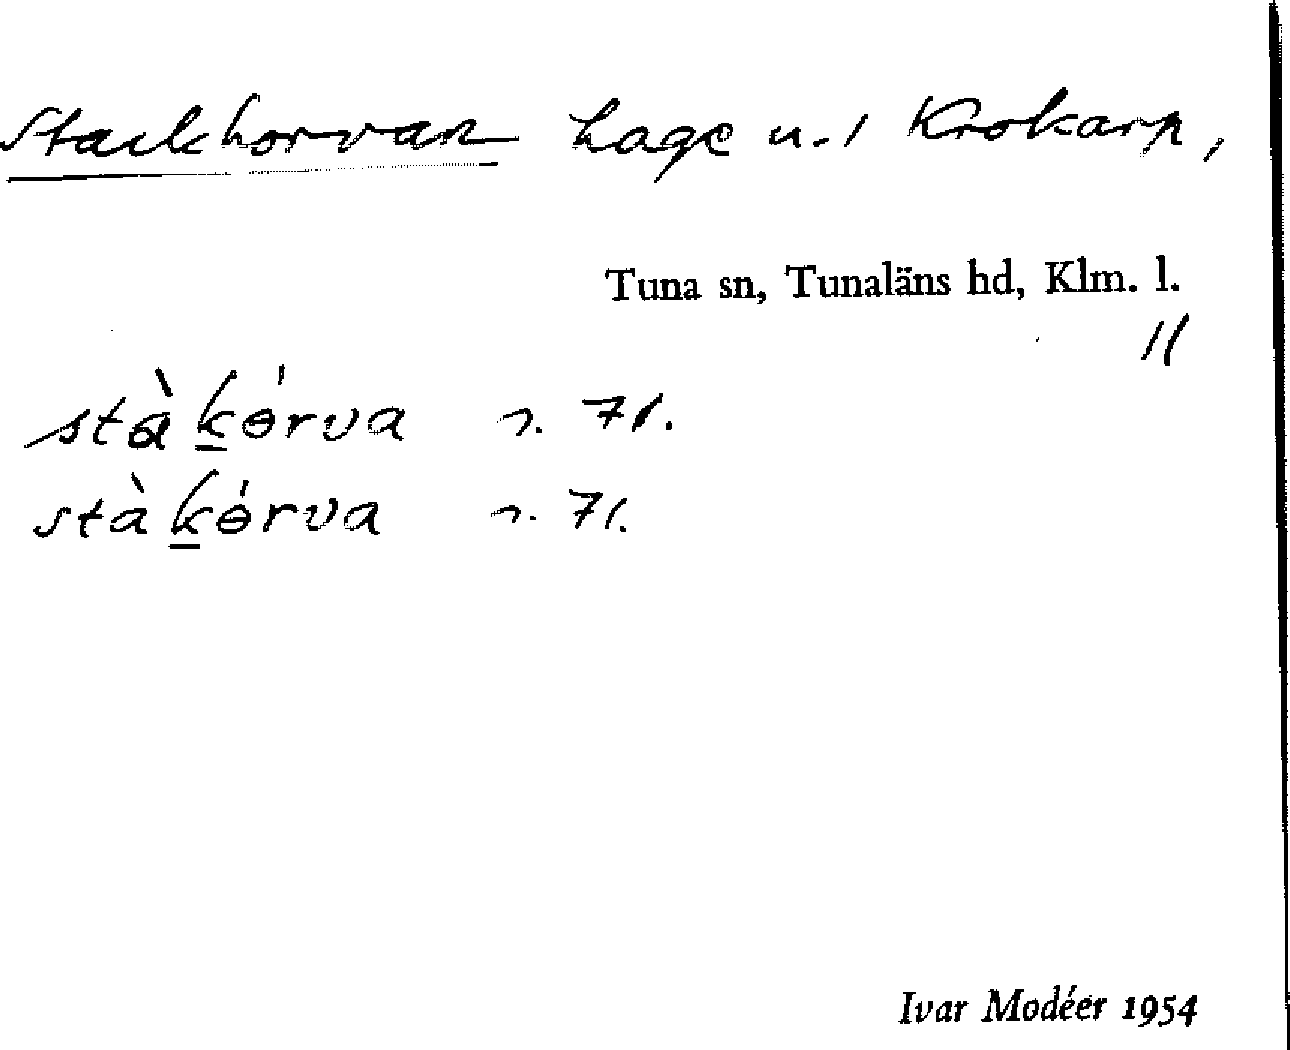 Stackhorvan hage u. 1 Krokarp,
Tuna sn, Tunaläns hd, Klm. l.
11
stàkɵ́rva n. 71.
stàkɵ́rva n. 71.
Ivar Modéer 1954